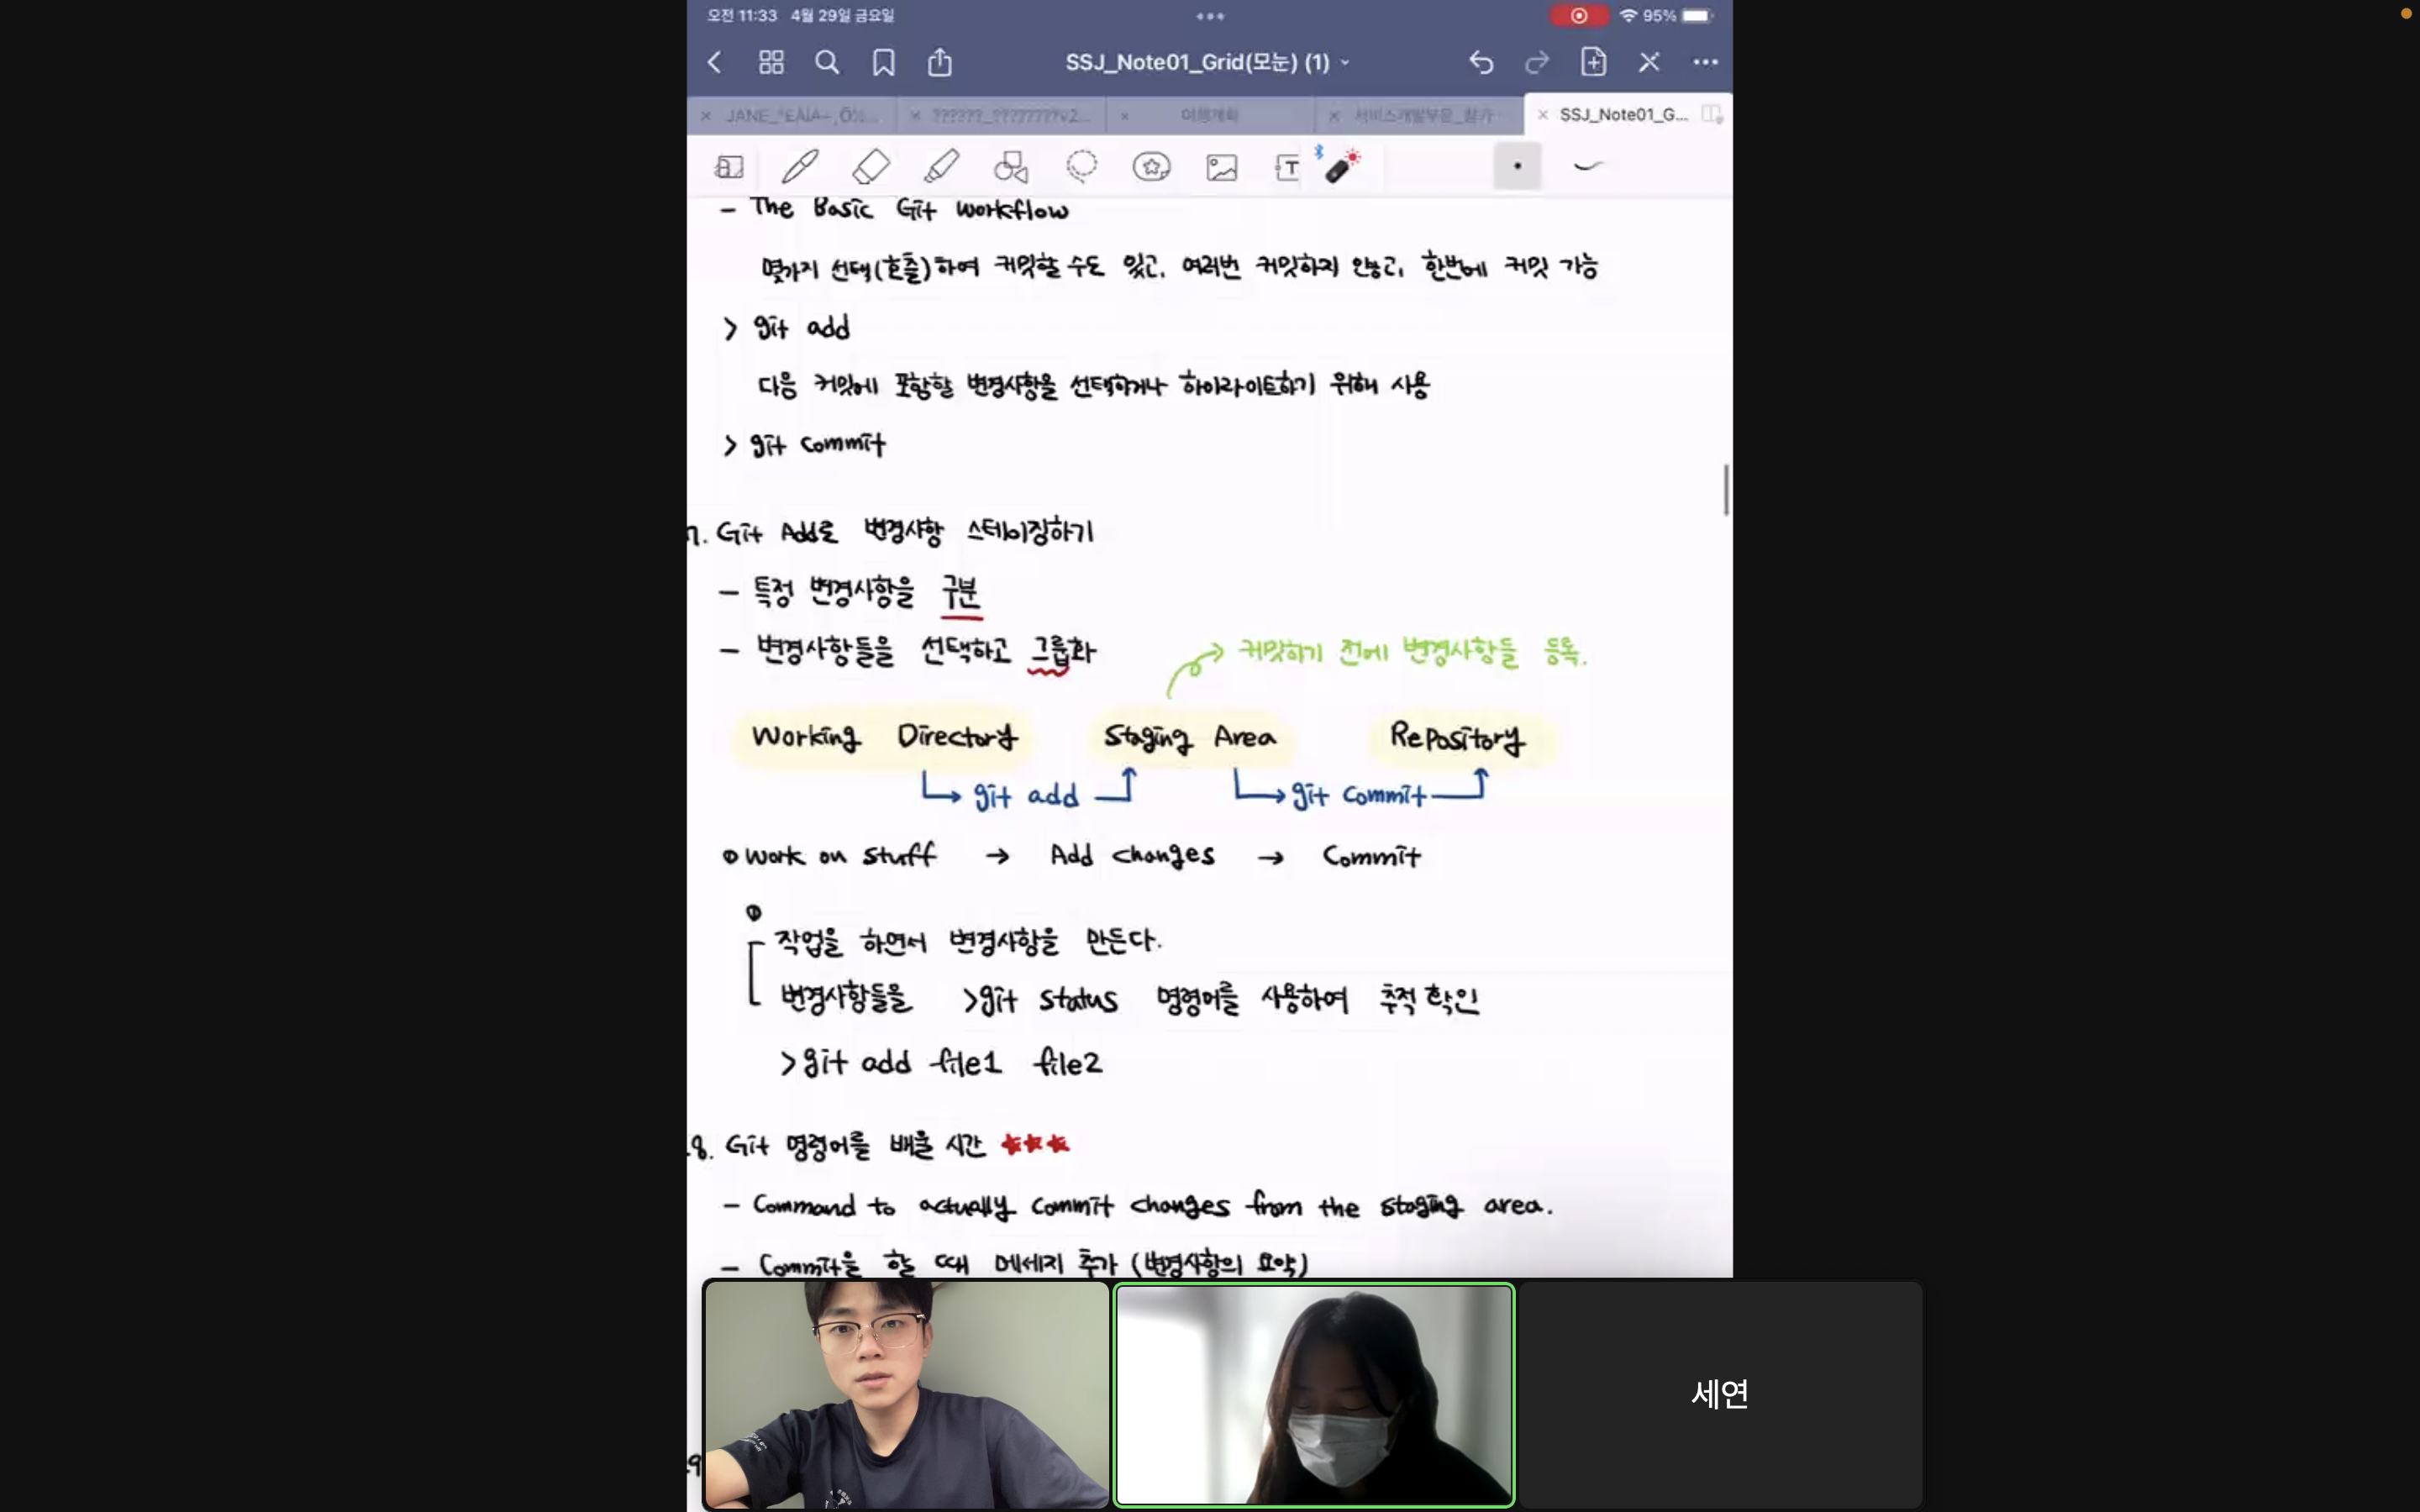 오전 11:33 4월 29일 금요일
95%
SSJ_Note01_Grid(모눈) (1)
JANE_
??????_????????v2...
이행계획
서비스개발부문_참가
SSJ_Note01_G...
- The Basic Git Workflow
몇가지 선택(호출)하여 커밋할 수도 있고, 여러번 커밋하지 않고, 한번에 커밋 가능
> git add
다음 커밋에 포함할 변경사항을 선택하거나 하이라이트하기 위해 사용
> git commit
7. Git Add로 변경사항 스테이징하기
- 특정 변경사항을 구분
- 변경사항들을 선택하고 그룹화
커밋하기 전에 변경사항들 등록.
Working Directory Staging Area Repository
git add git commit
Work on stuff → Add changes → Commit
작업을 하면서 변경사항을 만든다.
변경사항들을 >git status 명령어를 사용하여 추적 확인
>git add file1 file2
8. Git 명령어를 배울 시간 ★★★
- Command to actually commit changes from the staging area.
- Commit을 할 때 메세지 추가 (변경사항의 요약)
세연